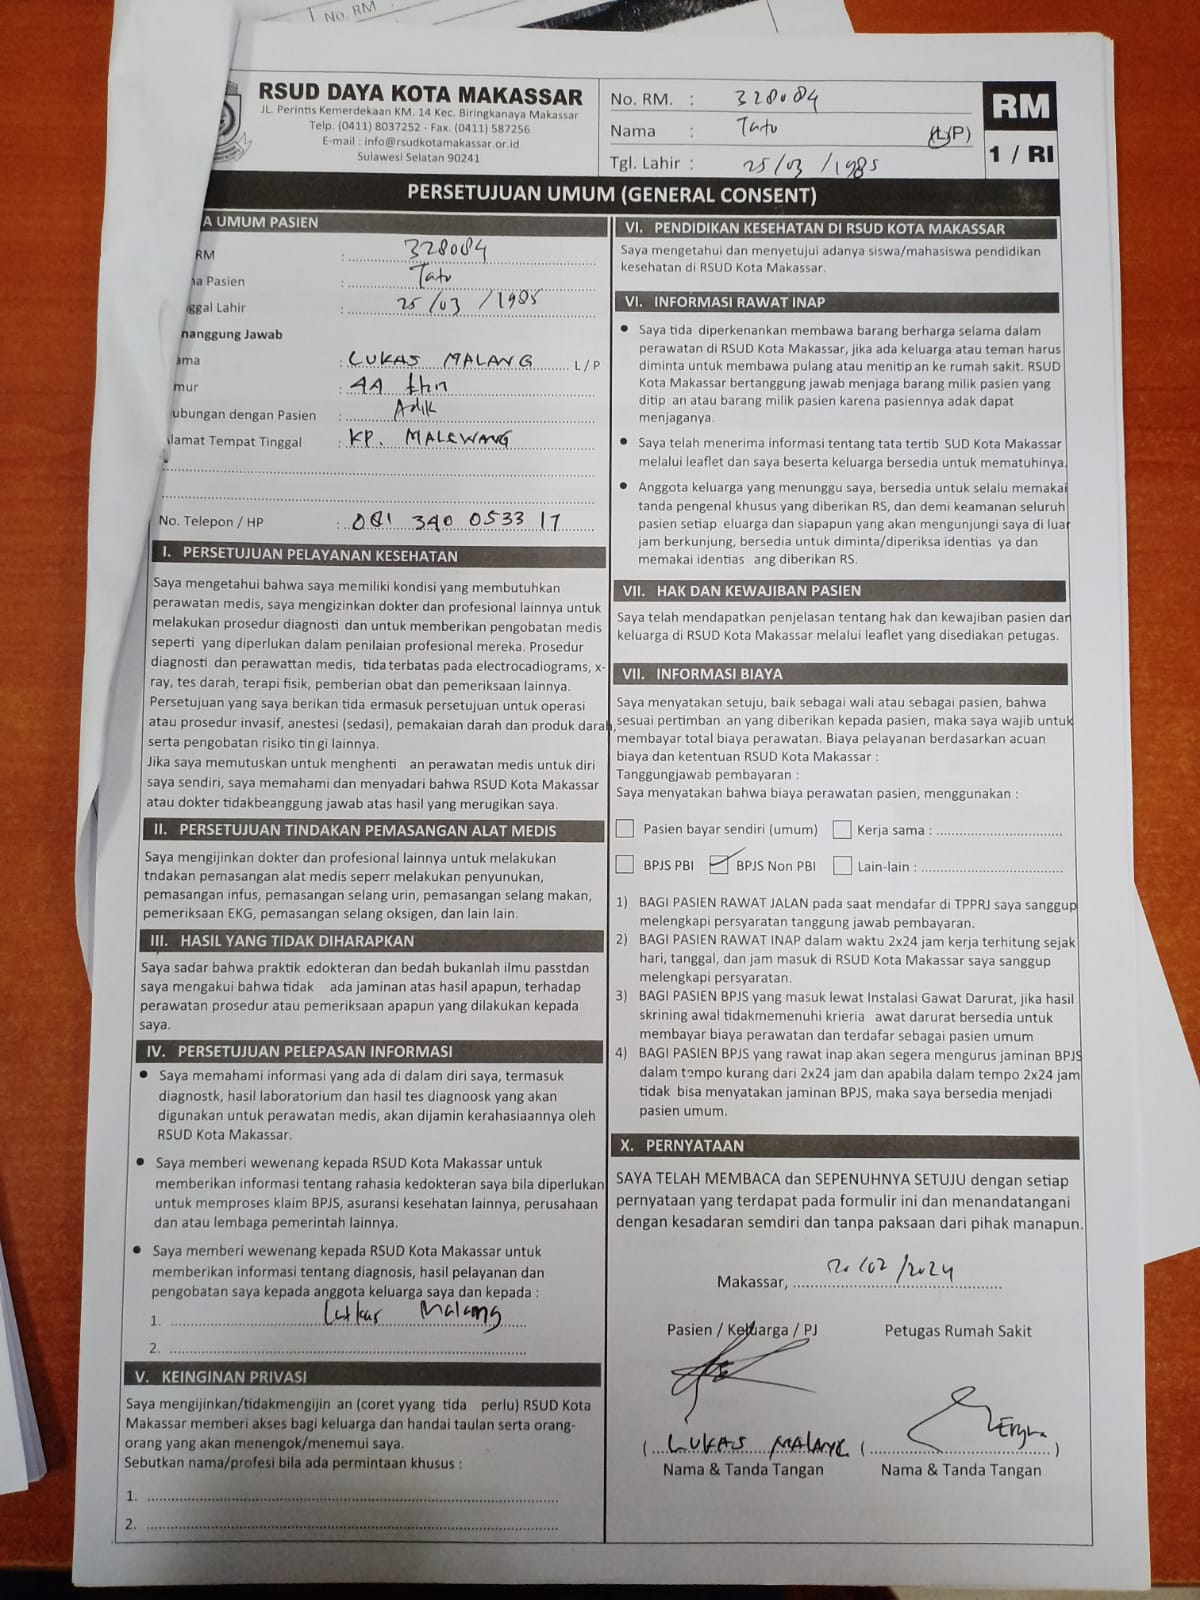 No. RM
RSUD DAYA KOTA MAKASSAR
JL. Perintis Kemerdekaan KM. 14 Kec. Biringkanaya Makassar
Telp. (0411) 8037252 - Fax. (0411) 587256
E-mail : info@rsudkotamakassar.or.id
Sulawesi Selatan 90241
No. RM. : 328084
Nama : Tato (L/P)
Tgl. Lahir : 25/03/1985
RM
1 / RI
PERSETUJUAN UMUM (GENERAL CONSENT)
A UMUM PASIEN
RM : 328084
a Pasien : Tato
ggal Lahir : 25/03/1985
nanggung Jawab
ama : LUKAS MALANG L/P
mur : 44 thn
ubungan dengan Pasien : Adik
lamat Tempat Tinggal : KP. MALEWANG
No. Telepon / HP : 081 340 0533 17
I. PERSETUJUAN PELAYANAN KESEHATAN
Saya mengetahui bahwa saya memiliki kondisi yang membutuhkan
perawatan medis, saya mengizinkan dokter dan profesional lainnya untuk
melakukan prosedur diagnosti dan untuk memberikan pengobatan medis
seperti yang diperlukan dalam penilaian profesional mereka. Prosedur
diagnosti dan perawattan medis, tida terbatas pada electrocadiograms, x-
ray, tes darah, terapi fisik, pemberian obat dan pemeriksaan lainnya.
Persetujuan yang saya berikan tida ermasuk persetujuan untuk operasi
atau prosedur invasif, anestesi (sedasi), pemakaian darah dan produk darah,
serta pengobatan risiko tin gi lainnya.
Jika saya memutuskan untuk menghenti an perawatan medis untuk diri
saya sendiri, saya memahami dan menyadari bahwa RSUD Kota Makassar
atau dokter tidakbeanggung jawab atas hasil yang merugikan saya.
II. PERSETUJUAN TINDAKAN PEMASANGAN ALAT MEDIS
Saya mengijinkan dokter dan profesional lainnya untuk melakukan
tndakan pemasangan alat medis seperr melakukan penyunukan,
pemasangan infus, pemasangan selang urin, pemasangan selang makan,
pemeriksaan EKG, pemasangan selang oksigen, dan lain lain.
III. HASIL YANG TIDAK DIHARAPKAN
Saya sadar bahwa praktik edokteran dan bedah bukanlah ilmu passtdan
saya mengakui bahwa tidak ada jaminan atas hasil apapun, terhadap
perawatan prosedur atau pemeriksaan apapun yang dilakukan kepada
saya.
IV. PERSETUJUAN PELEPASAN INFORMASI
• Saya memahami informasi yang ada di dalam diri saya, termasuk
diagnostk, hasil laboratorium dan hasil tes diagnoosk yang akan
digunakan untuk perawatan medis, akan dijamin kerahasiaannya oleh
RSUD Kota Makassar.
• Saya memberi wewenang kepada RSUD Kota Makassar untuk
memberikan informasi tentang rahasia kedokteran saya bila diperlukan
untuk memproses klaim BPJS, asuransi kesehatan lainnya, perusahaan
dan atau lembaga pemerintah lainnya.
• Saya memberi wewenang kepada RSUD Kota Makassar untuk
memberikan informasi tentang diagnosis, hasil pelayanan dan
pengobatan saya kepada anggota keluarga saya dan kepada :
1. Lukas Malang
2.
V. KEINGINAN PRIVASI
Saya mengijinkan/tidakmengijin an (coret yyang tida perlu) RSUD Kota
Makassar memberi akses bagi keluarga dan handai taulan serta orang-
orang yang akan menengok/menemui saya.
Sebutkan nama/profesi bila ada permintaan khusus :
1.
2.
VI. PENDIDIKAN KESEHATAN DI RSUD KOTA MAKASSAR
Saya mengetahui dan menyetujui adanya siswa/mahasiswa pendidikan
kesehatan di RSUD Kota Makassar.
VI. INFORMASI RAWAT INAP
• Saya tida diperkenankan membawa barang berharga selama dalam
perawatan di RSUD Kota Makassar, jika ada keluarga atau teman harus
diminta untuk membawa pulang atau menitip an ke rumah sakit. RSUD
Kota Makassar bertanggung jawab menjaga barang milik pasien yang
ditip an atau barang milik pasien karena pasiennya adak dapat
menjaganya.
• Saya telah menerima informasi tentang tata tertib SUD Kota Makassar
melalui leaflet dan saya beserta keluarga bersedia untuk mematuhinya.
• Anggota keluarga yang menunggu saya, bersedia untuk selalu memakai
tanda pengenal khusus yang diberikan RS, dan demi keamanan seluruh
pasien setiap eluarga dan siapapun yang akan mengunjungi saya di luar
jam berkunjung, bersedia untuk diminta/diperiksa identias ya dan
memakai identias ang diberikan RS.
VII. HAK DAN KEWAJIBAN PASIEN
Saya telah mendapatkan penjelasan tentang hak dan kewajiban pasien dan
keluarga di RSUD Kota Makassar melalui leaflet yang disediakan petugas.
VII. INFORMASI BIAYA
Saya menyatakan setuju, baik sebagai wali atau sebagai pasien, bahwa
sesuai pertimban an yang diberikan kepada pasien, maka saya wajib untuk
membayar total biaya perawatan. Biaya pelayanan berdasarkan acuan
biaya dan ketentuan RSUD Kota Makassar :
Tanggungjawab pembayaran :
Saya menyatakan bahwa biaya perawatan pasien, menggunakan :
Pasien bayar sendiri (umum) Kerja sama :
BPJS PBI BPJS Non PBI Lain-lain :
1) BAGI PASIEN RAWAT JALAN pada saat mendafar di TPPRJ saya sanggup
melengkapi persyaratan tanggung jawab pembayaran.
2) BAGI PASIEN RAWAT INAP dalam waktu 2x24 jam kerja terhitung sejak
hari, tanggal, dan jam masuk di RSUD Kota Makassar saya sanggup
melengkapi persyaratan.
3) BAGI PASIEN BPJS yang masuk lewat Instalasi Gawat Darurat, jika hasil
skrining awal tidakmemenuhi krieria awat darurat bersedia untuk
membayar biaya perawatan dan terdafar sebagai pasien umum
4) BAGI PASIEN BPJS yang rawat inap akan segera mengurus jaminan BPJS
dalam tempo kurang dari 2x24 jam dan apabila dalam tempo 2x24 jam
tidak bisa menyatakan jaminan BPJS, maka saya bersedia menjadi
pasien umum.
X. PERNYATAAN
SAYA TELAH MEMBACA dan SEPENUHNYA SETUJU dengan setiap
pernyataan yang terdapat pada formulir ini dan menandatangani
dengan kesadaran semdiri dan tanpa paksaan dari pihak manapun.
Makassar, 20/02/2024
Pasien / Keluarga / PJ Petugas Rumah Sakit
( LUKAS MALANG ( )
Nama & Tanda Tangan Nama & Tanda Tangan